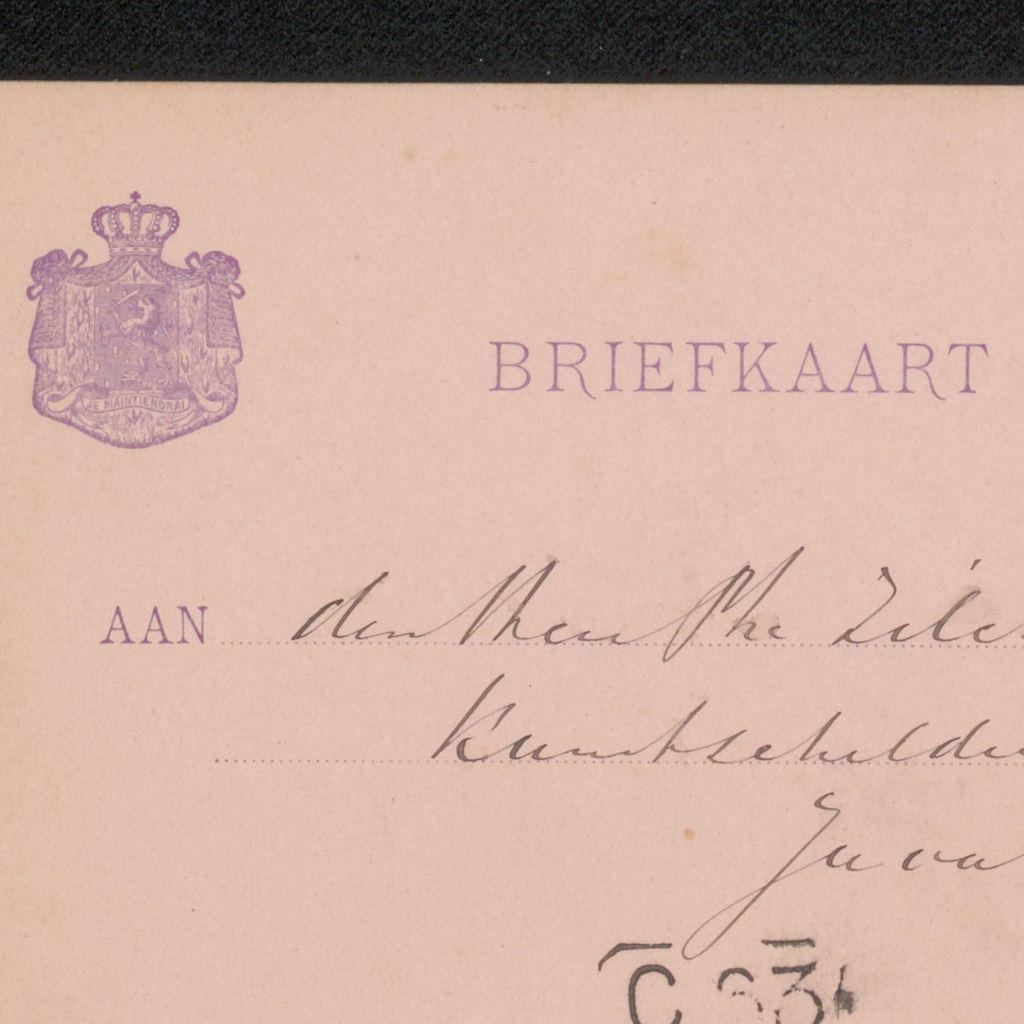 JE MAINTIENDRAI
BRIEFKAART
AAN den Heer Ph Zilc
Kunstschilde